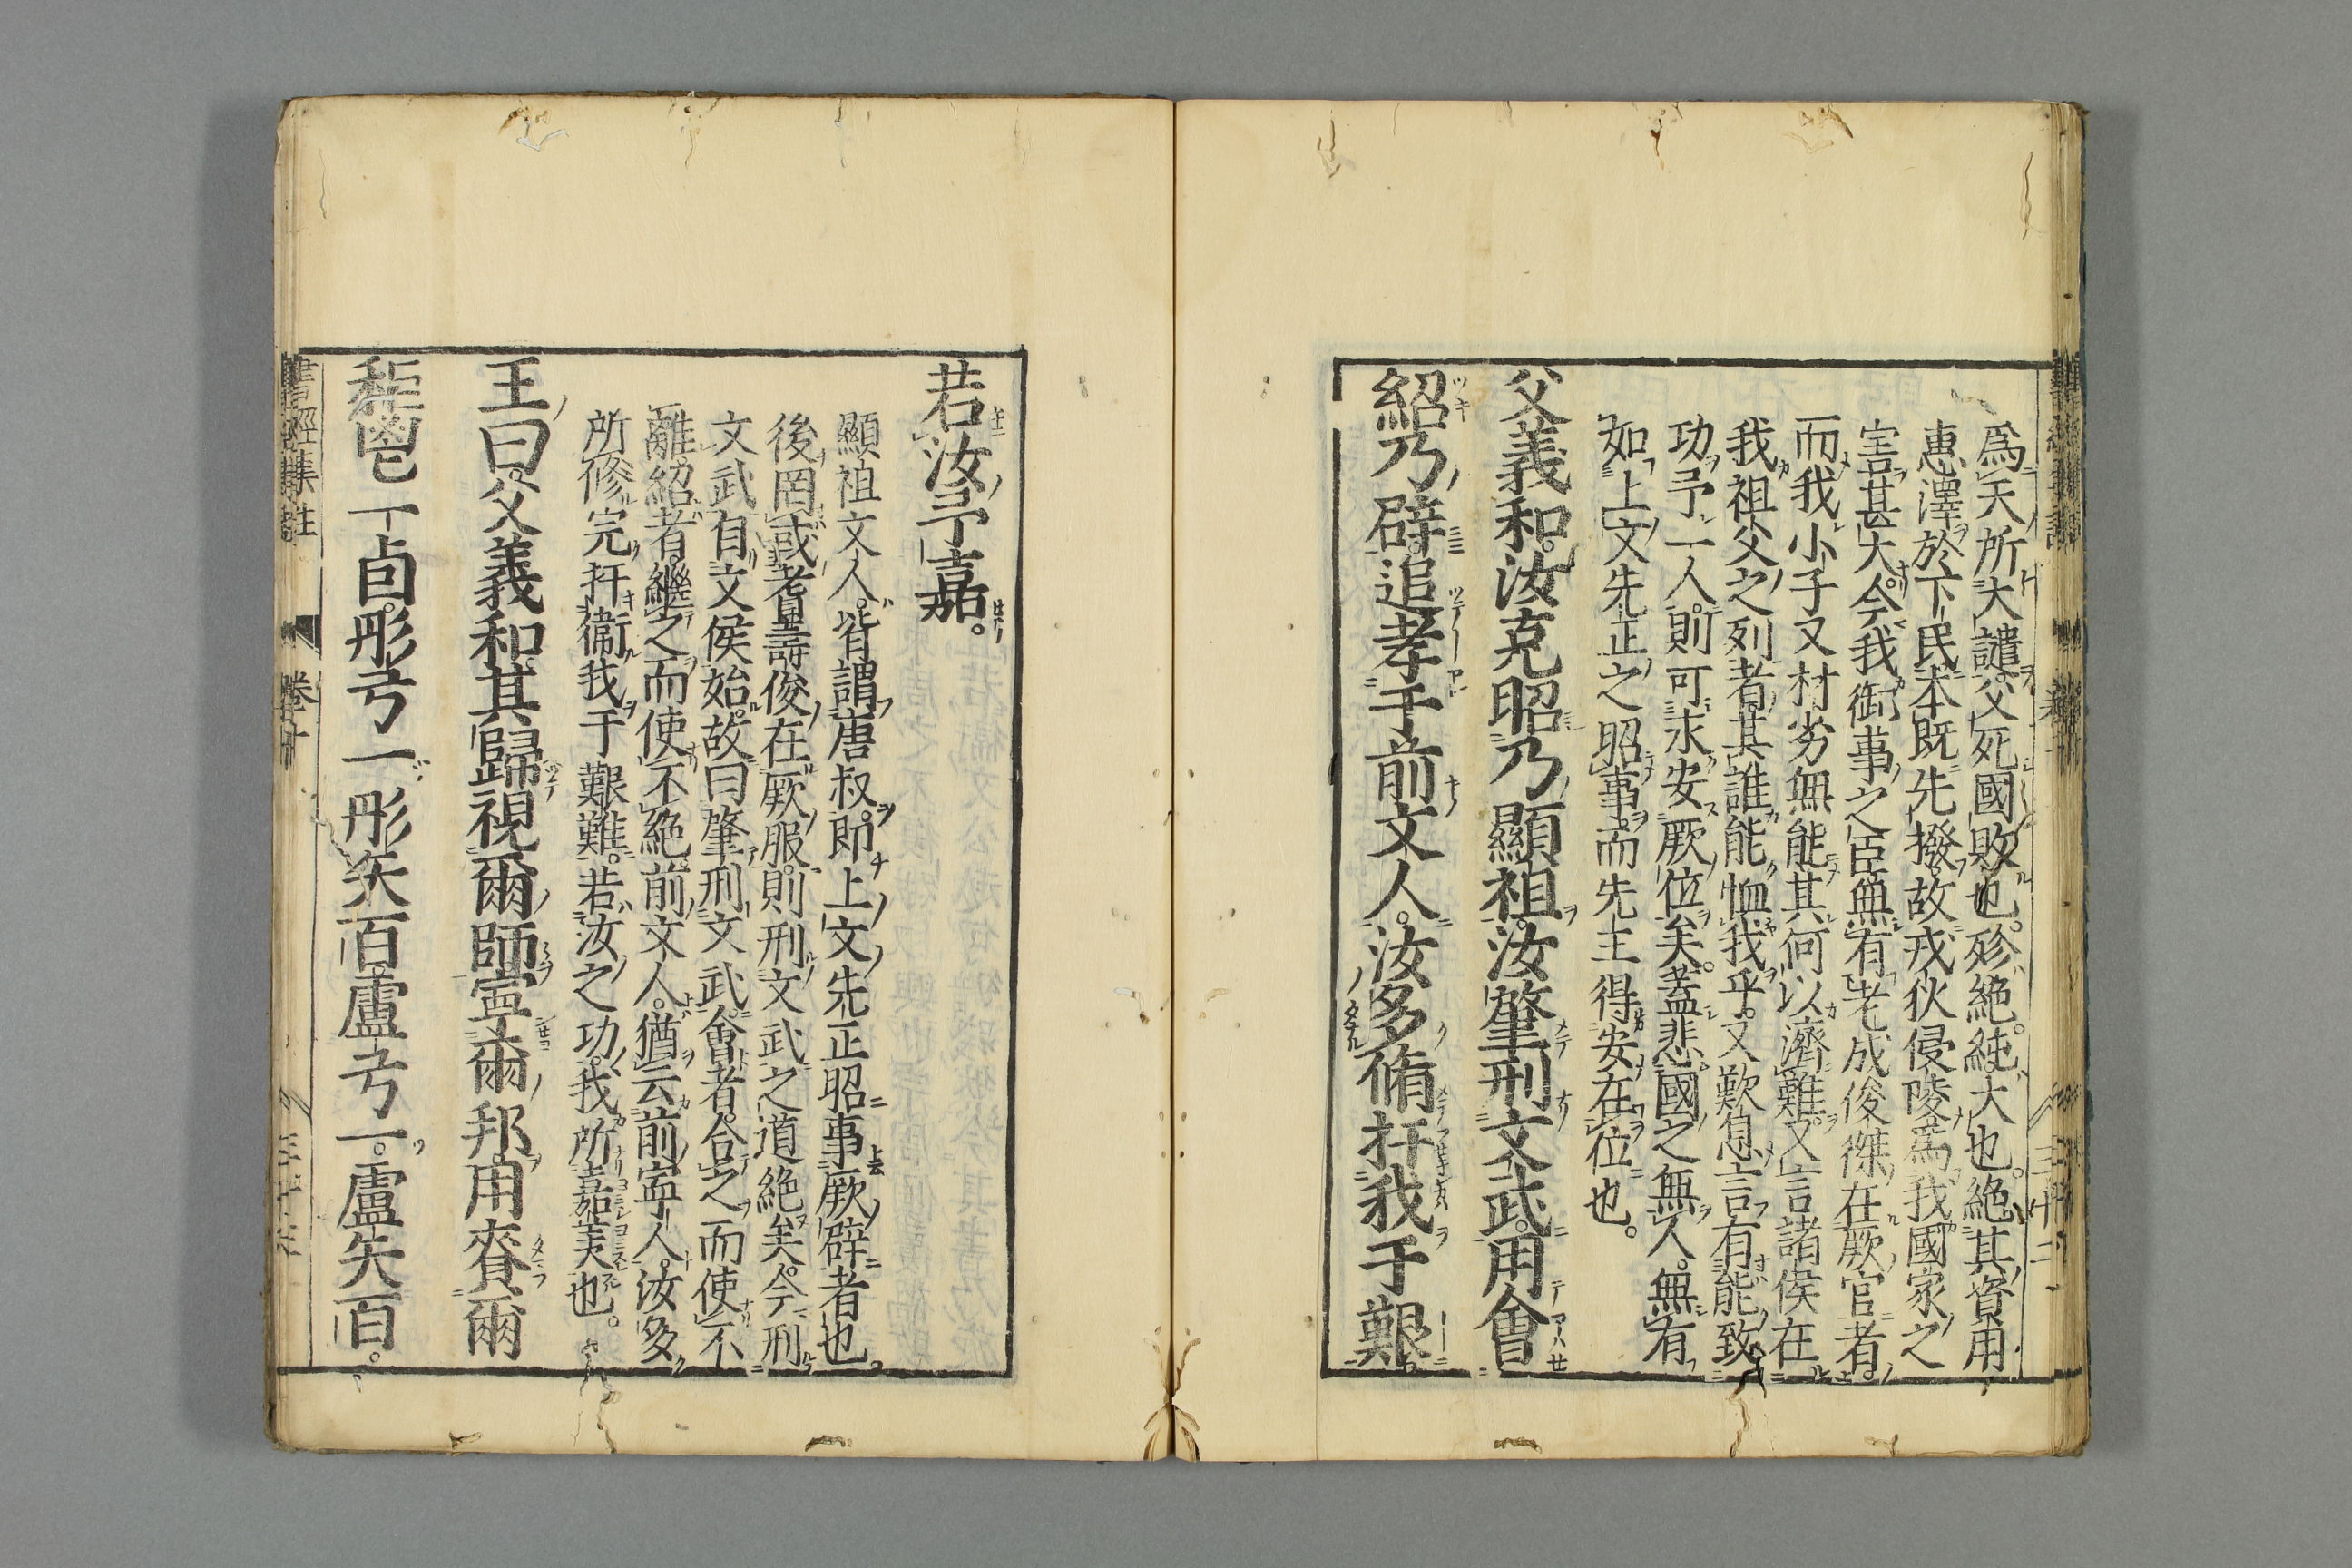 爲天所大譴。父死國敗也。殄絶。純大也。絶其資用
惠澤於下民本既先撥。故戎狄侵陵爲我國家之
害甚大。今我御事之臣無有老成俊傑在厥官者。
而我小子又材劣無能其何以濟難。又言諸侯在
我祖父之列者。其誰能恤我乎。又歎息言有能致
功予一人。則可永安厥位矣。蓋悲國之無人。無有
如上文先正之昭事。而先王得安在位也。
父義和。汝克昭乃顯祖。汝肇刑文武。用會
紹乃辟。追孝于前文人。汝多脩扞我于艱
若汝予嘉。
顯祖文人。皆謂唐叔。即上文先正昭事厥辟者也。
後罔或耆壽俊在厥服。則刑文武之道絶矣。今刑
文武自文侯始。故曰肇刑文武。會者。合之而使不
離。紹者。繼之而使不絶。前文人。猶云前寧人。汝多
所修完扞衞我于艱難。若汝之功。我所嘉美也。
王曰。父義和。其歸視爾師。寧爾邦。用賚爾
秬鬯一卣。彤弓一。彤矢百。盧弓一。盧矢百。
書經集註 卷十